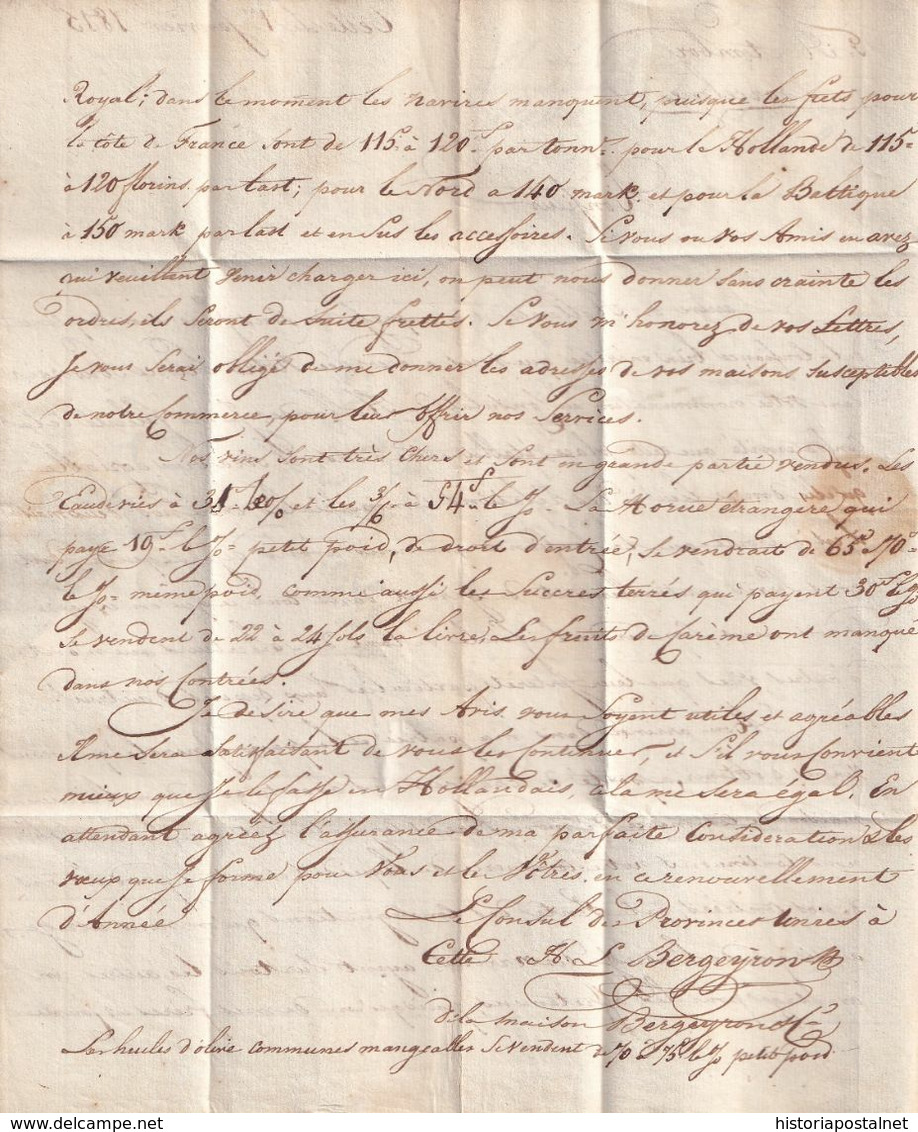 Royal; dans le moment les navires manquent, puisque les frets pour
la côte de France sont de 115 à 120 par tonn. pour la Hollande de 115
à 120 florins par last; pour le Nord a 140 mark et pour la Baltique
à 150 mark par last et en sus les accessoires. Si vous ou vos Amis en avez
qui veuillent venir charger ici, on peut nous donner sans crainte les
ordres, ils seront de suite frettés. Si vous m'honorez de vos Lettres,
Je vous serai obligé de me donner les adresses de vos maisons susceptibles
de notre Commerce, pour leur offrir nos Services.
Nos vins sont très chers et sont en grande partie vendus. Les
Eaudevies à et les 3/6 à 54 le La Morue étrangere qui
paye 19 le petit poid, de droit d'entrée, se vendrait de 65 à 70
le même poid, comme aussi les Succres terrés qui payent 30
se vendent de 22 à 24 sols la livre. Les fruits de Carème ont manqué
dans nos Contrées.
Je désire que mes Avis vous soyant utiles et agréables
Il me sera satisfaisant de vous les Continuer, et s'il vous Convient
mieux que Je le fasse en Hollandais, cela me sera égal. En
attendant agréez l'assurance de ma parfaite Consideration & les
vœux que Je forme pour Vous et les Vôtres en ce renouvellement
d'Année
Le Consul des Provinces Unies à
Cette H. L. Bergeyron
de la maison Bergeyron & Cie
Les huiles d'olive communes mangeables se vendent de 70 à 75 le petit poid
historiapostalnet